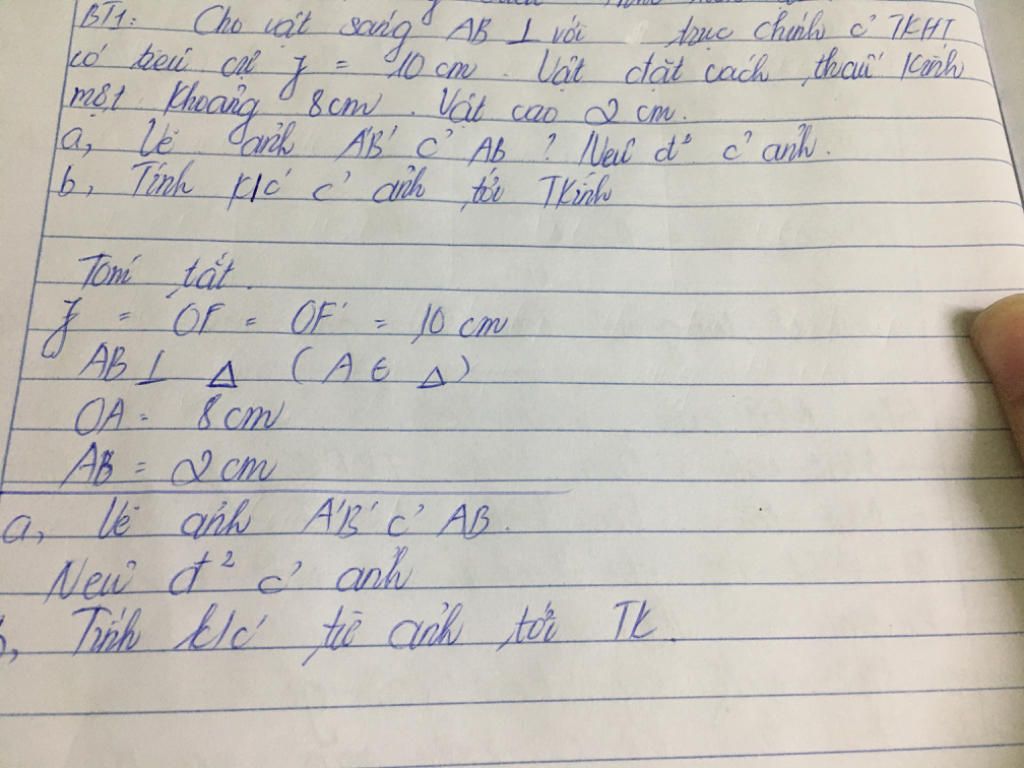 BT1: Cho vật sáng AB ⊥ với trục chính c' TKHT
có tiêu cự f = 10 cm. Vật đặt cách thấu kính
một khoảng 8cm. Vật cao 2 cm.
a, Vẽ ảnh A'B' c' AB ? Nêu đ² c' ảnh.
b, Tính k/c c' ảnh tới TKính
Tóm tắt.
f = OF = OF' = 10 cm
AB ⊥ Δ (A ∈ Δ)
OA = 8cm
AB = 2cm
a, Vẽ ảnh A'B' c' AB.
Nêu đ² c' ảnh
b, Tính k/c từ ảnh tới TK.